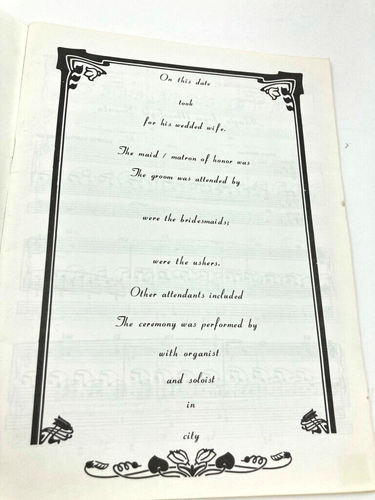 On this date
took
for his wedded wife.
The maid / matron of honor was
The groom was attended by
were the bridesmaids;
were the ushers.
Other attendants included
The ceremony was performed by
with organist
and soloist
in
city